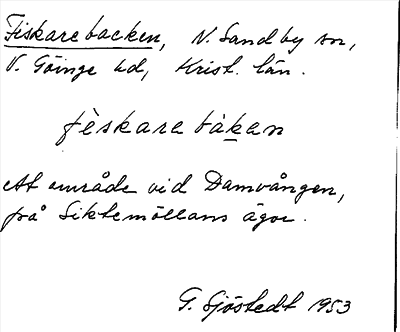 Fiskarebacken, N. Sandby sn,
V. Göinge hd, Krist. län.
fèskarebàkan
ett område vid Damvången,
på Siktemöllans ägor.
G. Sjöstedt 1953